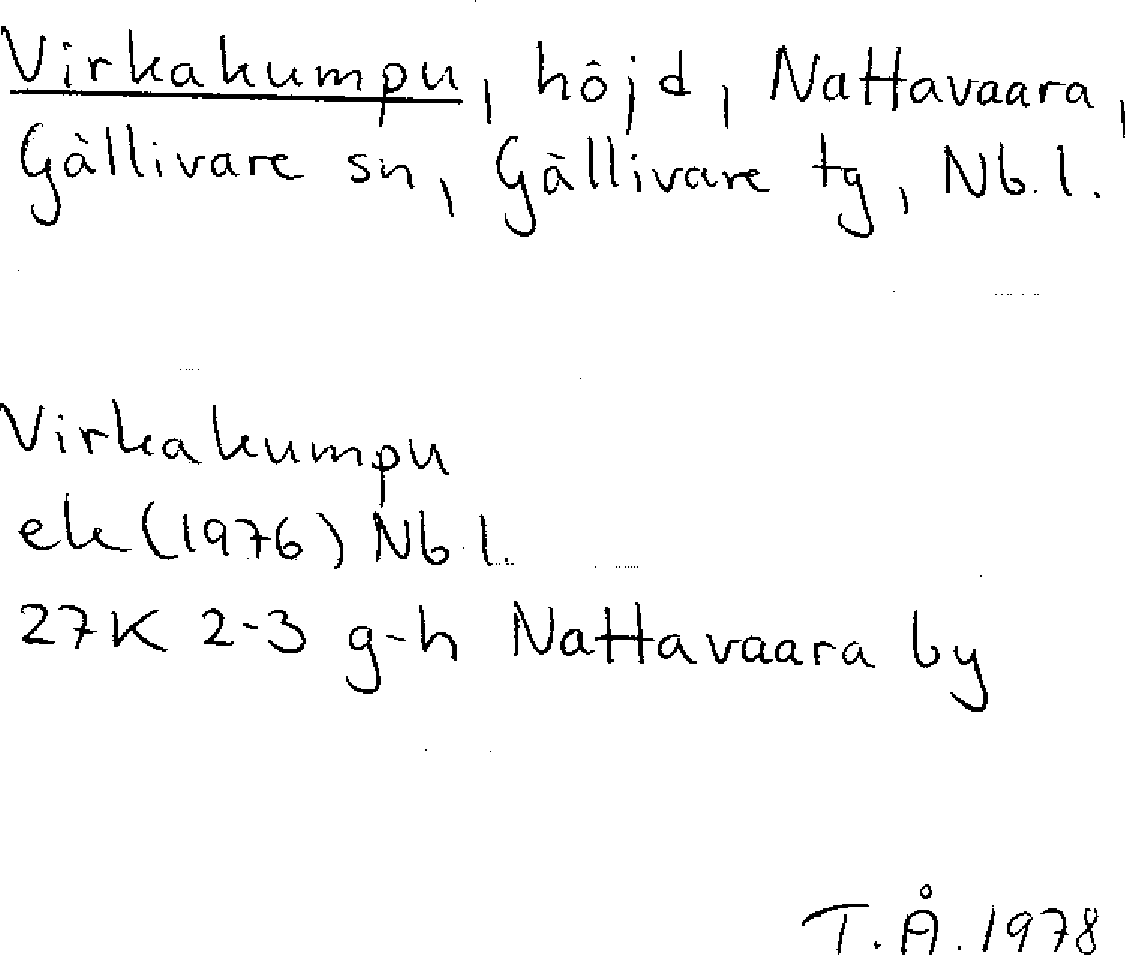 Virkakumpu, höjd, Nattavaara,
Gällivare sn, Gällivare tg, Nb. l.
Virkakumpu
ek (1976) Nb. l.
27K 2-3 g-h Nattavaara by
T.Å. 1978